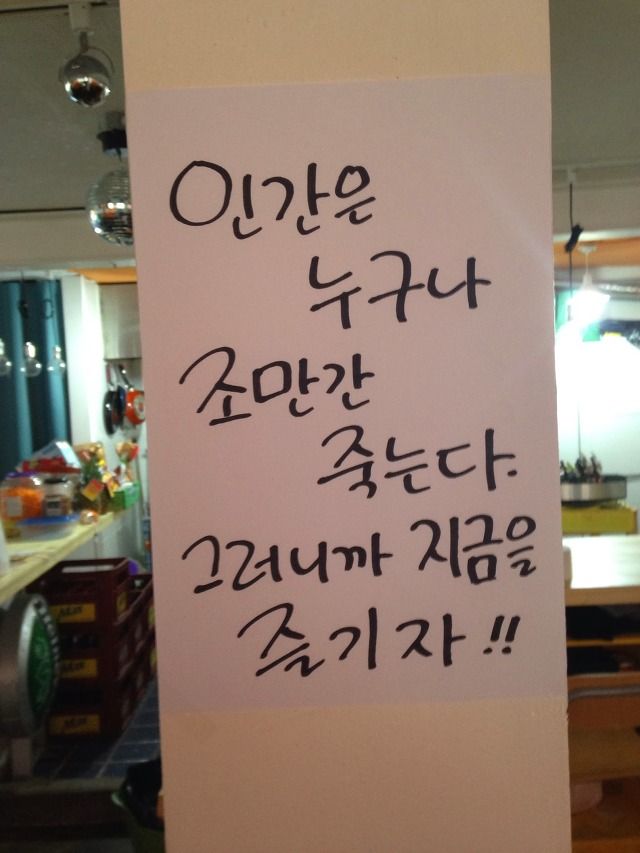 인간은
누구나
조만간
죽는다.
그러니까 지금을
즐기자!!